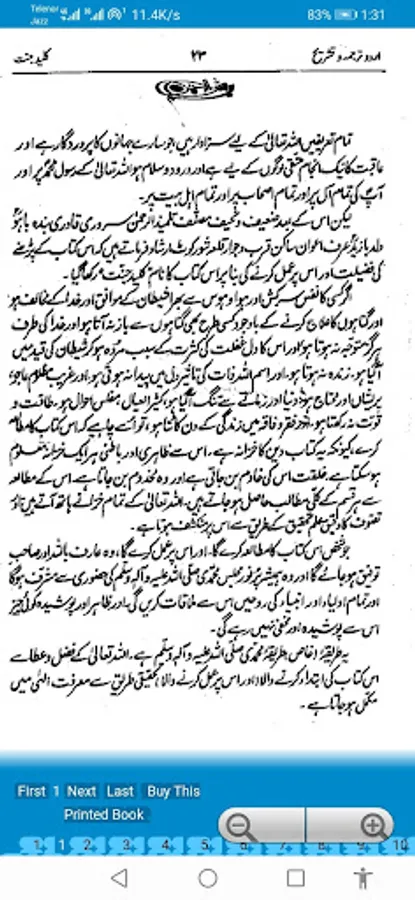 Telenor
Jazz
11.4K/s
83%
1:31
اردو ترجمہ و تشریح
۲۳
کلید جنت
تمام تعریفیں اللہ تعالیٰ کے لیے سزاوار ہیں، جو سارے جہانوں کا پروردگار ہے اور
عاقبت کا نیک انجام متقی لوگوں کے لیے ہے اور درود و سلام ہو اللہ تعالیٰ کے رسول محمدؐ پر اور
آپؐ کی تمام آل پر اور تمام اصحاب پر اور تمام اہل بیت پر۔
لیکن اس کے بعد ضعیف و نحیف مصنف تلمیذ الرحمٰن سروری قادری بندہ باہُوؒ
ولد بازیدؒ عرف اعوان ساکن قرب و جوار قلعہ شور کوٹ ارشاد فرماتے ہیں کہ اس کتاب کے پڑھنے
کی فضیلت اور اس پر عمل کرنے کی بنا پر اس کتاب کا نام کلید جنت رکھا گیا۔
اگر کسی کا نفس سرکش اور ہوا و ہوس سے بھرا شیطان کے موافق اور خدا کے مخالف ہو
اور گناہوں کا علاج کرنے کے باوجود کسی طرح بھی گناہوں سے باز نہ آتا ہو اور خدا کی طرف
ہرگز متوجہ نہ ہوتا ہو اور اس کا دل غفلت کی کثرت کے سبب مردہ ہو کر شیطان کی قید میں
آ گیا ہو، زندہ نہ ہوتا ہو، اور اسم اللہ ذات کی تاثیر دل میں پیدا نہ ہوتی ہو، اور غریب مظلوم عاجز
پریشاں اور محتاج ہو، دنیا اور زمانے سے تنگ آ گیا ہو، کثیر العیال مفلس احوال ہو۔ طاقت و
قوت نہ رکھتا ہو، اور فقر و فاقہ میں زندگی کے دن کاٹتا ہو، تو اُسے چاہیے کہ اس کتاب کا مطالعہ
کرے کیونکہ یہ کتاب دین کا خزانہ ہے، اس سے ظاہری اور باطنی ہر ایک خزانہ معلوم
ہو سکتا ہے، خلقت اس کی خادم بن جاتی ہے اور وہ مخدوم بن جاتا ہے، اس کے مطالعہ
سے ہر قسم کے کلی مطالب حاصل ہو جاتے ہیں، اللہ تعالیٰ کے تمام خزانے ہاتھ آتے ہیں اور
تصوف کا دقیق علم تحقیق کے طریق سے اس پر منکشف ہوتا ہے۔
جو شخص اس کتاب کا مطالعہ کرے گا، اور اس پر عمل کرے گا، وہ عارف باللہ اور صاحب
توفیق ہو جائے گا اور وہ ہمیشہ پُر نور مجلس محمدی صلی اللہ علیہ وآلہ وسلم کی حضوری سے مشرف ہوگا
اور تمام اولیاء اور انبیاء کی روحیں اس سے ملاقات کریں گی، اور ظاہر اور پوشیدہ کوئی چیز
اس سے پوشیدہ اور مخفی نہیں رہے گی۔
یہ طریقہ خاص طریقۂ محمدی صلی اللہ علیہ وآلہ وسلم ہے۔ اللہ تعالیٰ کے فضل و عطا سے
اس کتاب کی ابتدا کرنے والا اور اس پر عمل کرنے والا حقیقی طریق سے معرفت الٰہی میں
مکمل ہو جاتا ہے۔
First 1 Next Last Buy This
Printed Book
1 1 2 3 4 5 6 7 8 9 10